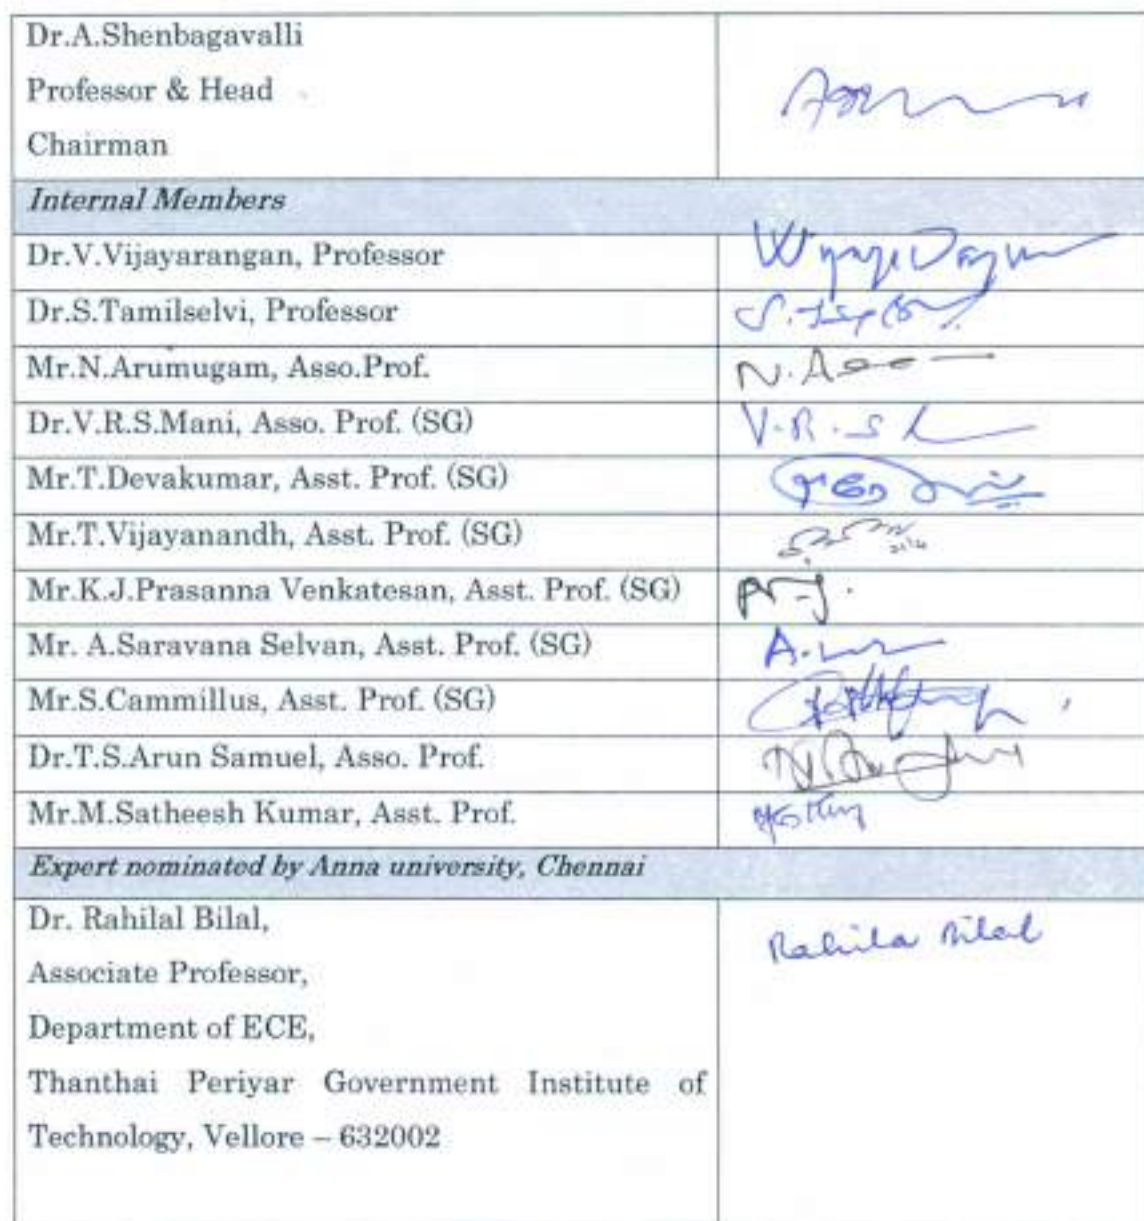 Dr.A.Shenbagavalli
Professor & Head
Chairman
Internal Members
Dr.V.Vijayarangan, Professor
Dr.S.Tamilselvi, Professor
Mr.N.Arumugam, Asso.Prof.
N.A
Dr.V.R.S.Mani, Asso. Prof. (SG)
V.R.S
Mr.T.Devakumar, Asst. Prof. (SG)
Mr.T.Vijayanandh, Asst. Prof. (SG)
Mr.K.J.Prasanna Venkatesan, Asst. Prof. (SG)
Mr. A.Saravana Selvan, Asst. Prof. (SG)
Mr.S.Cammillus, Asst. Prof. (SG)
Dr.T.S.Arun Samuel, Asso. Prof.
Mr.M.Satheesh Kumar, Asst. Prof.
Expert nominated by Anna university, Chennai
Dr. Rahilal Bilal,
Rahila Bilal
Associate Professor,
Department of ECE,
Thanthai Periyar Government Institute of
Technology, Vellore – 632002